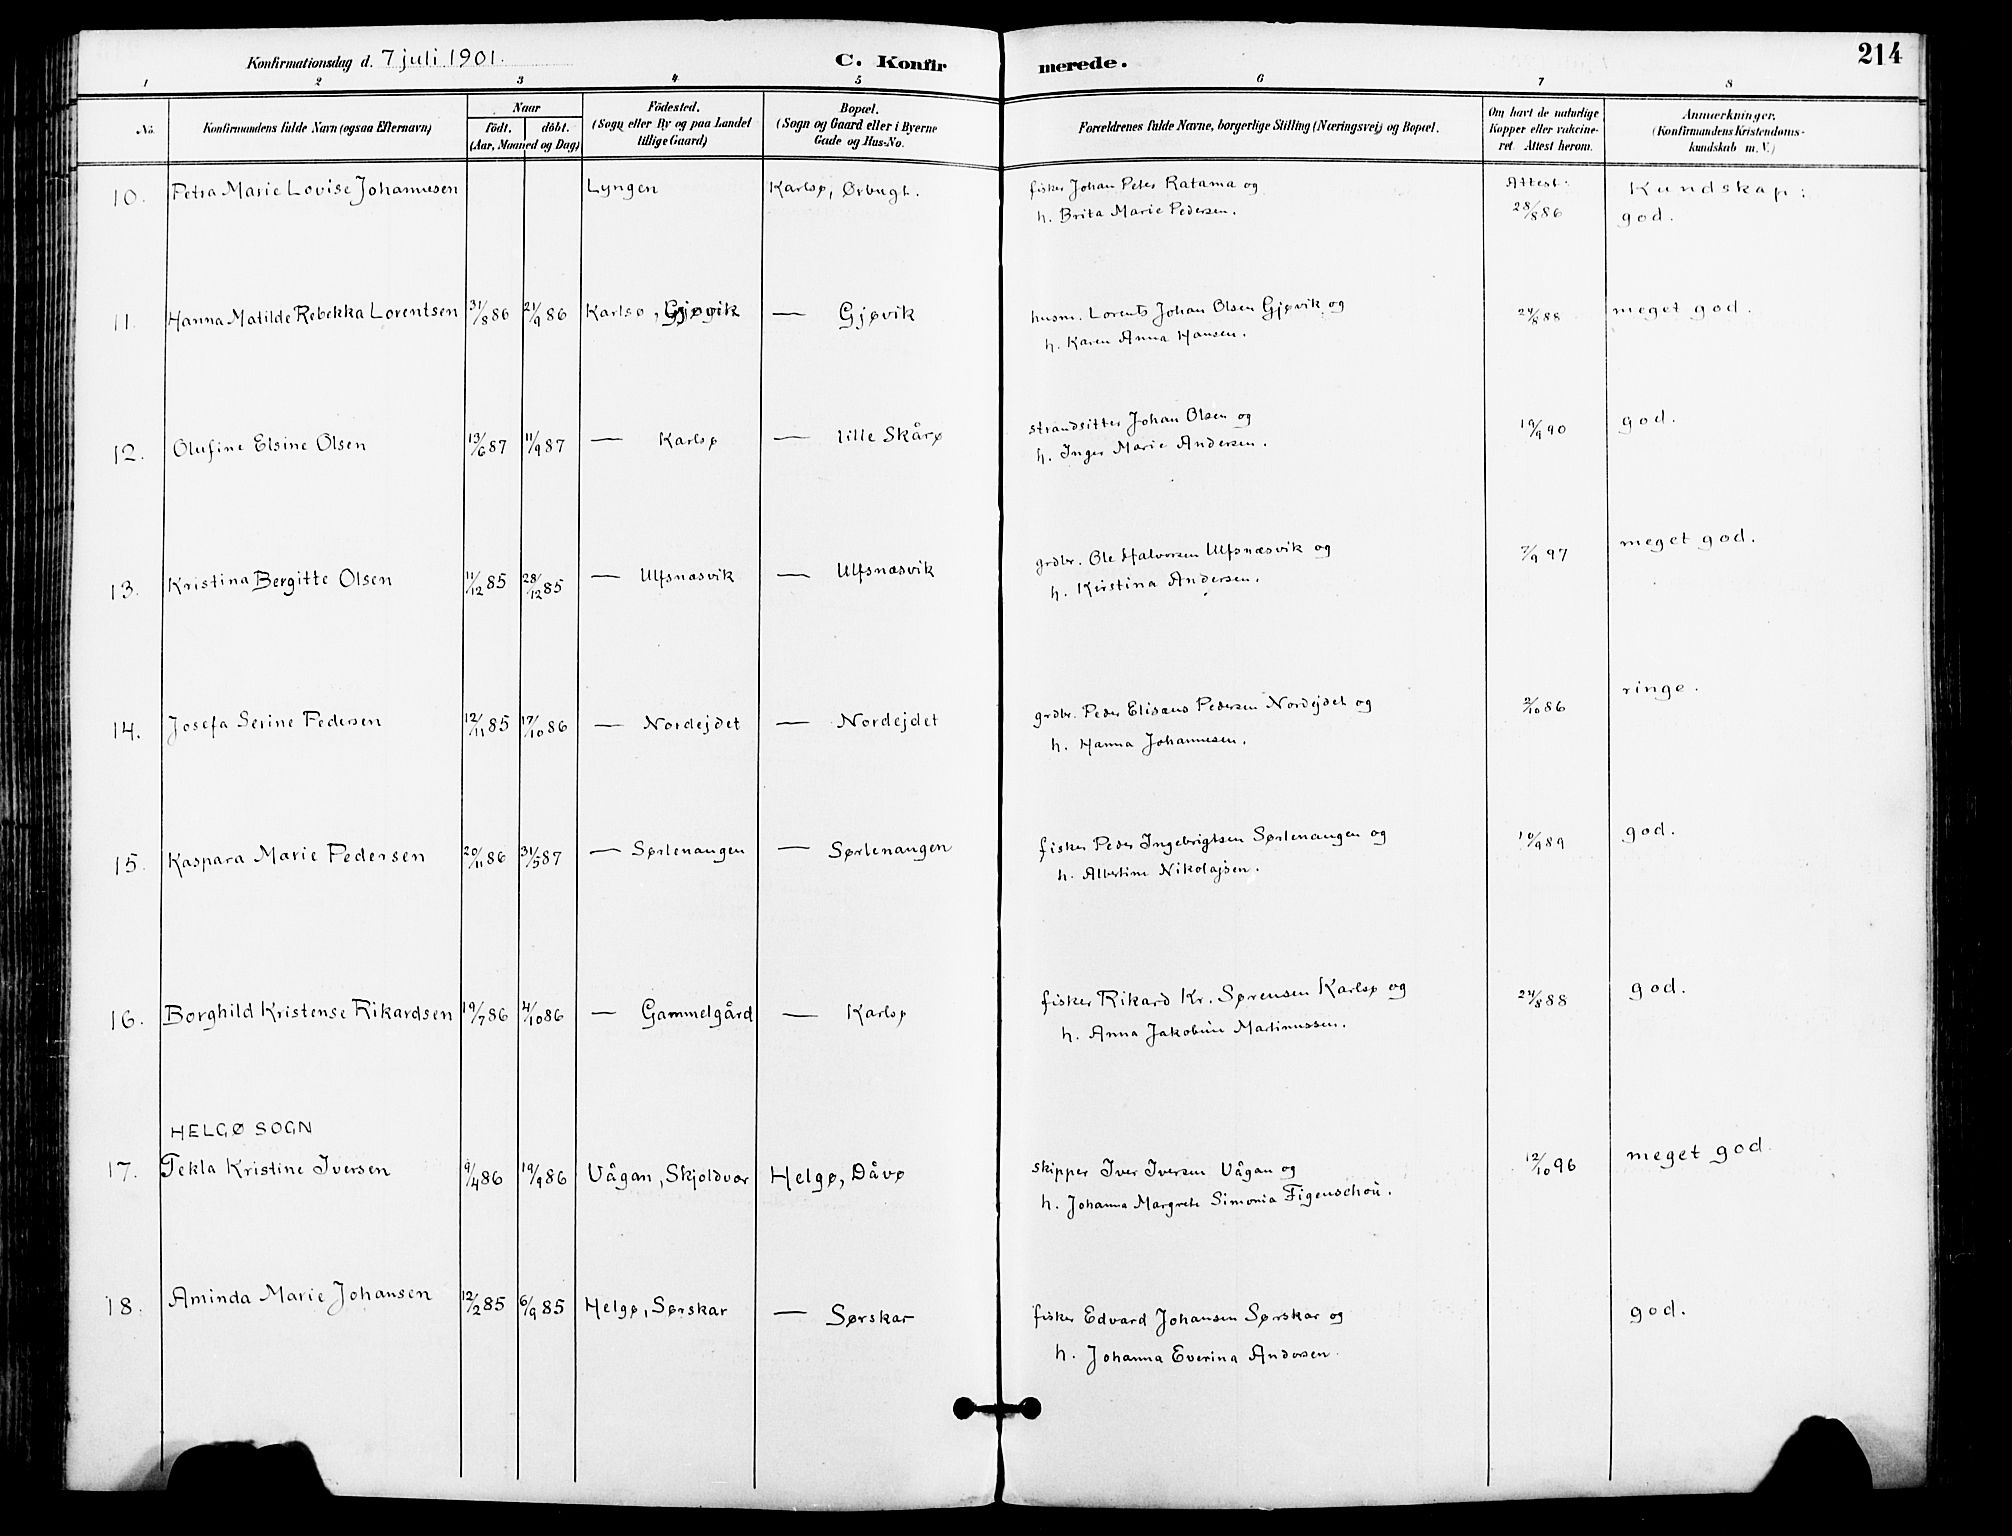 Konfirmationsdag d. 7 juli 1901. C. Konfirmerede. 214
1 2 3 4 5 6 7 8
No. Konfirmandens fulde Navn (ogsaa Efternavn) Naar født. døbt. (Aar, Maaned og Dag) Födested. (Sogn eller By og paa Landet tillige Gaard) Bopæl. (Sogn og Gaard eller i Byerne Gade og Hus-No. Forældrenes fulde Navne, borgerlige Stilling (Næringsvej) og Bopæl. Om havt de naturlige Kopper eller vakcineret. Attest herom. Anmærkninger. (Konfirmandens Kristendomskundskab m. V.)
10. Petra Marie Lovise Johannesen Lyngen Karlsø, Ørbugt. fisker Johan Peter Ratama og Attest: Kundskap:
h. Brita Marie Pedersen. 28/8 86 god.
11. Hanna Matilde Rebekka Lorentsen 31/8 86 21/9 86 Karlsø, Gjøvik — Gjøvik husm. Lorents Johan Olsen Gjøvik og 24/8 88 meget god.
h. Karen Anna Hansen.
12. Olufine Elsine Olsen 13/6 87 11/9 87 — Karlsø — lille Skårø strandsitter Johan Olsen og 19/9 90 god.
h. Inger Marie Andersen.
13. Kristina Bergitte Olsen 11/12 85 28/12 85 — Ulfsnæsvik — Ulfsnæsvik grdbr. Ole Halvorsen Ulfsnæsvik og 7/9 97 meget god.
h. Kirstina Andersen.
14. Josefa Serine Pedersen 12/11 85 17/10 86 — Nordejdet — Nordejdet grdbr. Peder Elisæus Pedersen Nordejdet og 2/10 86 ringe.
h. Hanna Johannesen.
15. Kaspara Marie Pedersen 20/11 86 31/5 87 — Sørlenangen — Sørlenangen fisker Peder Ingebrigtsen Sørlenangen og 10/9 89 god.
h. Albertine Nikolajsen.
16. Borghild Kristense Rikardsen 19/7 86 4/10 86 — Gammelgård — Karlsø fisker Rikard Kr. Sørensen Karlsø og 24/8 88 god.
h. Anna Jakobine Martinussen.
HELGØ SOGN
17. Tekla Kristine Iversen 9/4 86 19/9 86 Vågan, Skjoldvær Helgø, Dåvø skipper Iver Iversen Vågan og 12/10 96 meget god.
h. Johanna Margrete Simonia Figenschou.
18. Aminda Marie Johansen 12/2 85 6/9 85 Helgø, Sørskar — Sørskar fisker Edvard Johansen Sørskar og god.
h. Johanna Everina Andersen.